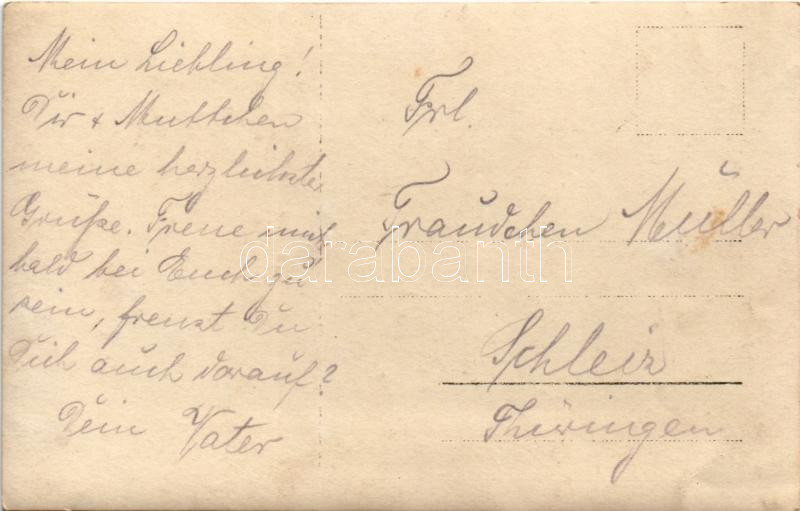 Mein Liebling!
Dir + Muttchen
meine herzlichste
Grüße. Freue mich
bald bei Euch zu
sein, freust Du
Dich auch darauf?
Dein Vater
Frl.
Traudchen Müller
Schleiz
Thüringen
darabanth